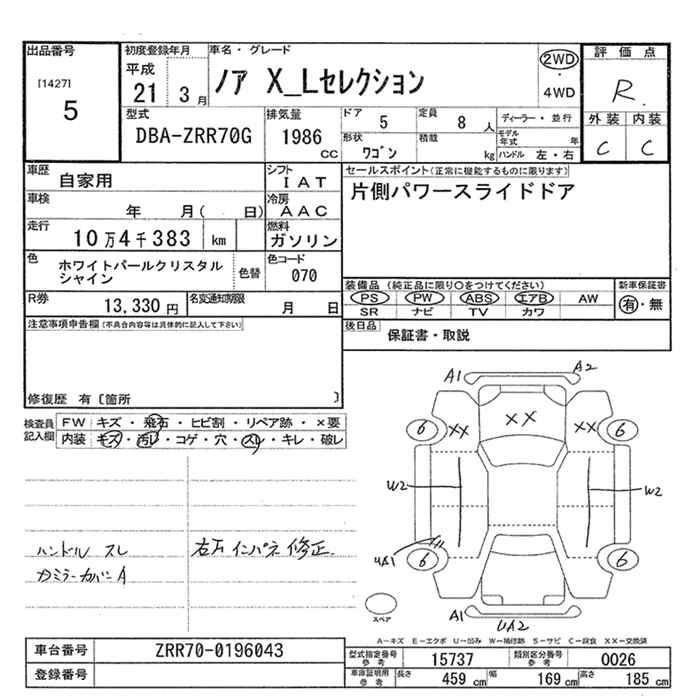 出品番号 初度登録年月 車名・グレード 2WD 評価点
[1427] 平成 ノア X_Lセレクション ・ R
5 21 3月 4WD
型式 排気量 ドア 5 定員 8人 ディーラー・並行 外装 内装
DBA-ZRR70G 1986cc 形状 ワゴン 積載 kg モデル年式 年 C C
ハンドル 左・右
車歴 自家用 シフト IAT セールスポイント(正常に機能するものに限ります)
車検 年 月( 日) 冷房 AAC 片側パワースライドドア
走行 10万4千383 km 燃料 ガソリン
色 ホワイトパールクリスタル 色替 色コード 070
シャイン
装備品(純正品に限り○をつけてください) 新車保証書
PS PW ABS エアB AW 有・無
SR ナビ TV カワ
R券 13,330円 名変通知期限 月 日
注意事項申告欄(不具合内容等は具体的に記入して下さい) 後日品 保証書・取説
修復歴 有〔箇所 〕
検査員記入欄 FW キズ・飛石・ヒビ割・リペア跡・×要
内装 キズ・汚レ・コゲ・穴・スレ・キレ・破レ
A1 A2
XX
6 XX XX 6
W2 W2
UA1
6 6
A1 UA2
スペア
ハンドル スレ 右下インパネ修正
カミラーカバーA
A-キズ E-エクボ U-凹み W-補修跡 S-サビ C-腐食 XX-交換済
車台番号 ZRR70-0196043
登録番号
型式指定番号参考 15737 類別区分番号参考 0026
車庫証明用参考 長さ 459cm 幅 169cm 高さ 185cm